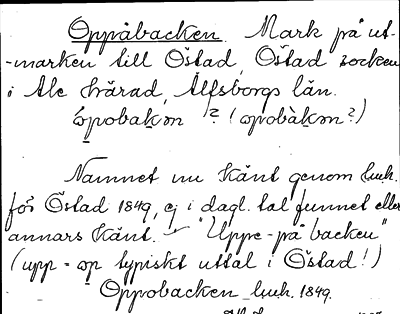 Oppåbacken. Mark på ut-
-marken till Östad, Östad socken
i Ale härad, Älfsborgs län.
opobakən ? (opobàkən?)
Namnet nu känt genom huh.
för Östad 1849, ej i dagl. tal funnet eller
annars känt. – "Uppe-på backen"
(upp = op typiskt uttal i Östad!)
Oppobacken huh. 1849.